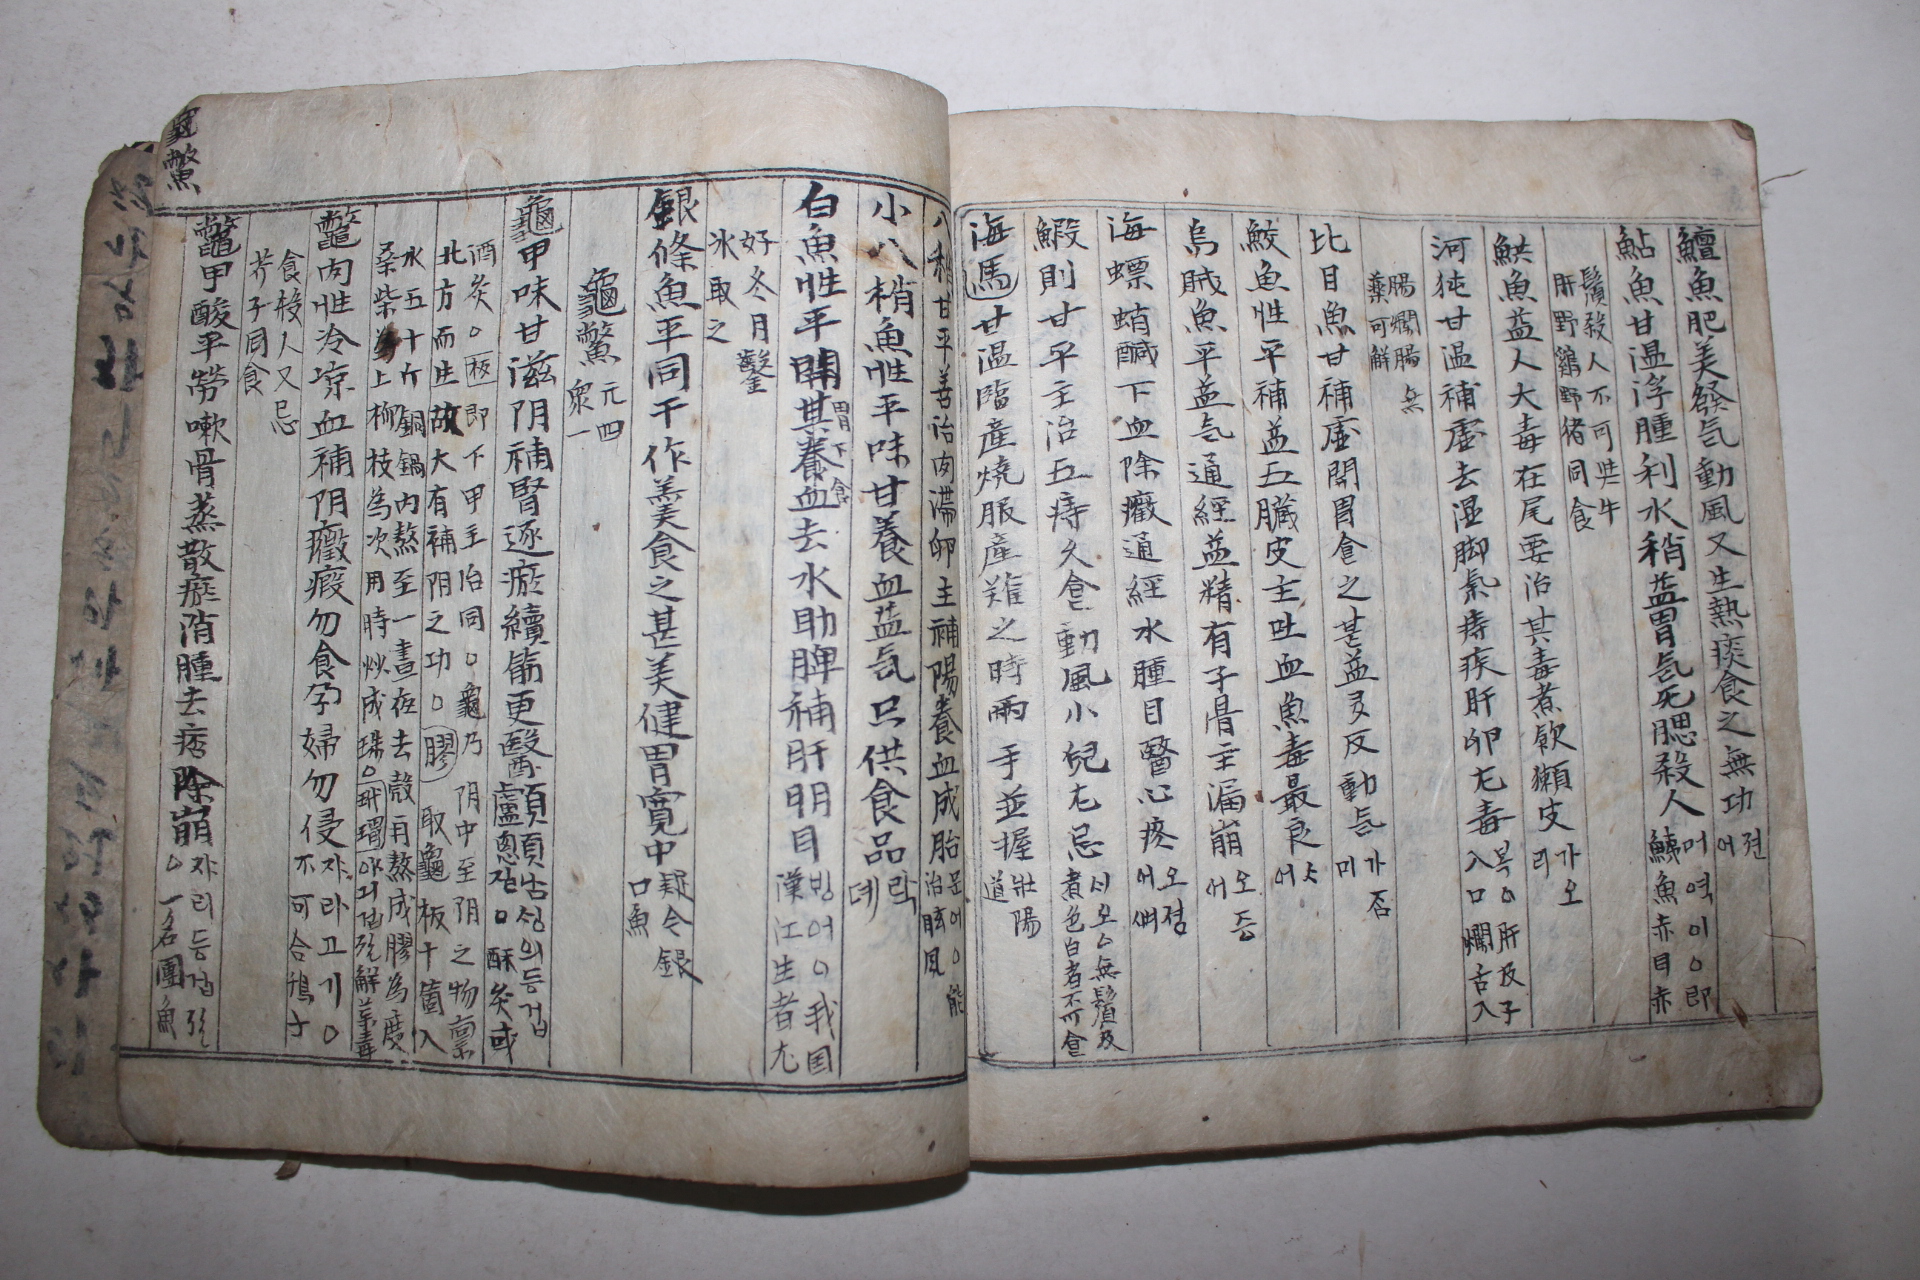 鱣魚肥美發氣動風又生熱痰食之無功 젼어
鮎魚甘溫浮腫利水稍益胃氣无腮殺人 머역이○即鮧魚赤目赤
鬚殺人不可㐫牛肝野鷄野猪同食
魟魚益人大毒在尾要治其毒煮飮獺皮 가오리
河㹠甘溫補虛去湿脚氣痔疾肝卵尤毒 복○肝及子入口爛舌入
腸爛腸無藥可解
比目魚甘補虛開胃食之甚益多反動氣 가미
鮫魚性平補益五臟皮主吐血魚毒最良 상어
烏賊魚平益氣通經益精有子骨主漏崩 오증어
海螵蛸鹹下血除癥通經水腫目瞖心疼 오젹어뼈
鰕則甘平主治五痔久食動風小兒尤忌 시오○無鬚及煮色白者不可食
海馬甘溫臨産燒服産難之時兩手並握 壯陽道
八稍甘平善治肉滯卵主補陽養血成胎 문어○能治眩風
小八梢魚性平味甘養血益氣只供食品 락데
白魚性平開其胃下食養血去水助脾補肝明目 빙어○我国漢江生者尤
好冬月鑿氷取之
銀條魚平同干作羹食之甚美健胃寬中 疑今銀口魚
龜鱉 元四衆一
龜甲味甘滋阴補腎逐瘀續筋更醫顱顖 남셩의등겁질○酥灸或
酒灸○板即下甲主治同○龜乃阴中至阴之物禀
北方而生故大有補阴之功○膠取龜板十箇入
水五十斤銅鍋内熬至一晝夜去殼再熬成膠為度
桑柴為上柳枝為次用時炒成珠○玳瑁야긔겁질解百毒
鱉肉性冷凉血補阴癥瘕勿食孕婦勿侵 자라고기○不可合鷄子
食殺人又忌芥子同食
鱉甲酸平勞嗽骨蒸散瘀消腫去痞除崩 자리등겁질○一名團魚
龜鱉